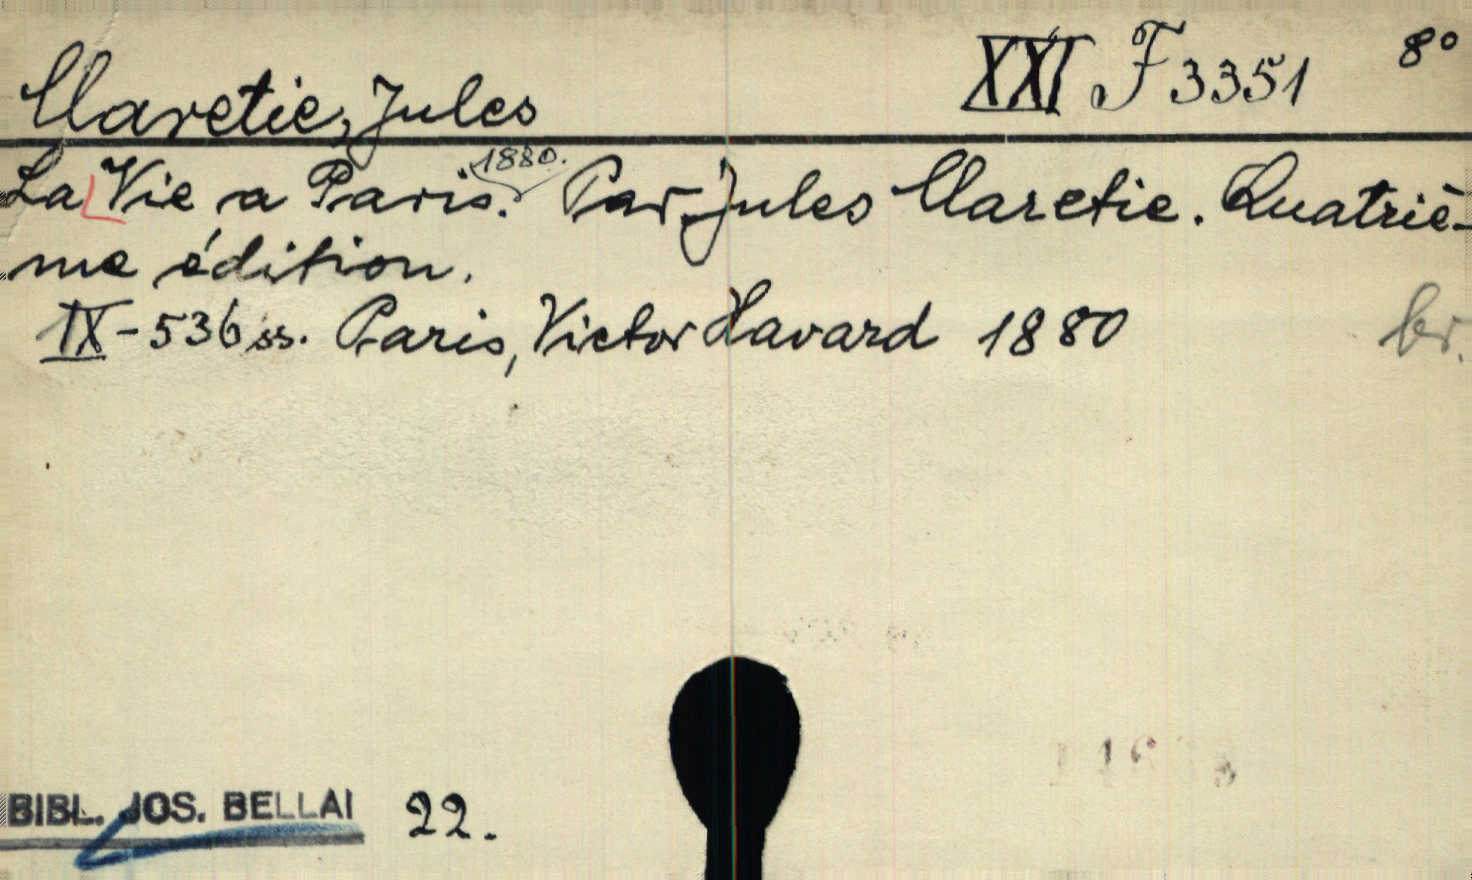 Claretie, Jules XXI F 3351 8°
La Vie a Paris. 1880. Par Jules Claretie. Quatriè-
me édition.
IX-536 ss. Paris, Victor Havard 1880 br.
BIBL. JOS. BELLAI 22.